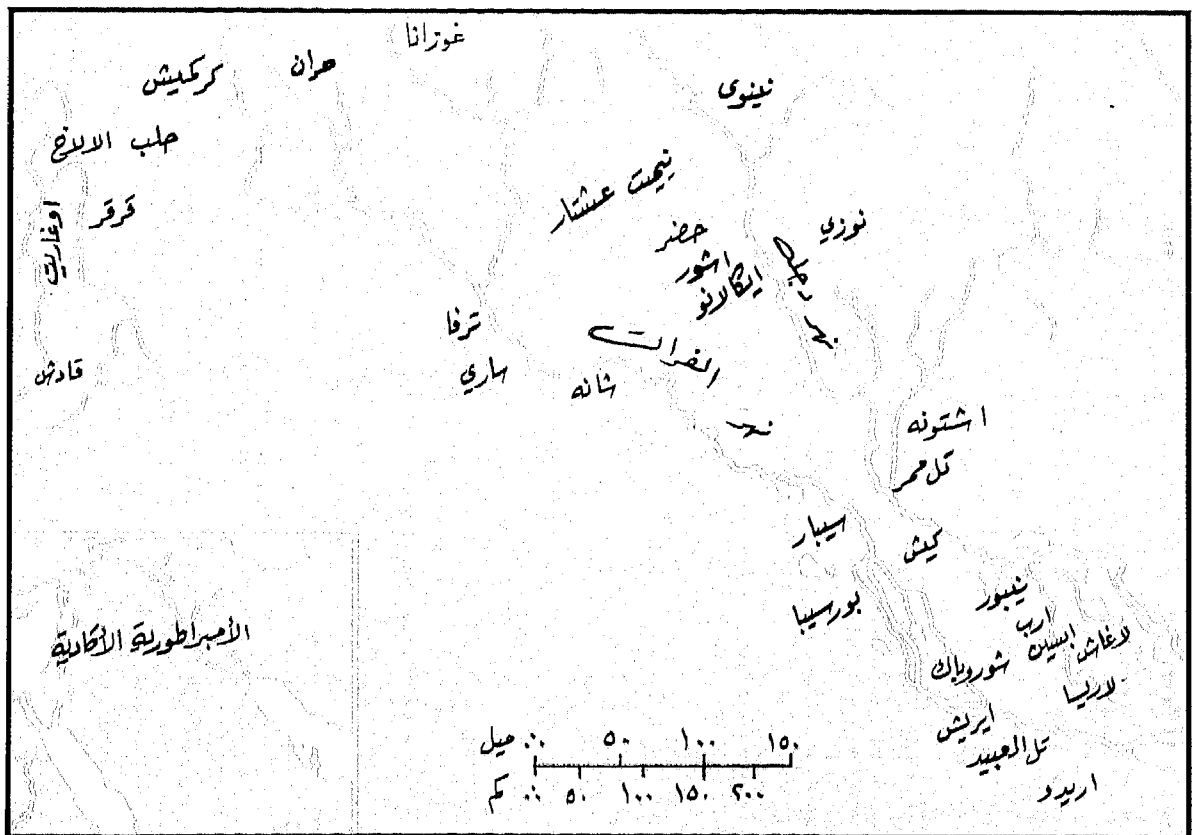 غوزانا
كركميش
حران
نينوى
حلب الالاخ
اوغاريت
قرقر
نيمت عشتار
حضر
اشور
ايكالانو
نهر دجلة
نوزي
ترفا
ساري
نهر الفرات
شانه
قادش
اشتونه
تل ممر
سيبار
كيش
بورسيبا
نيبور
ارب
ابسين
لاغاش
شوروباك
لاريسا
ايريش
تل العبيد
اريدو
الأمبراطورية الأكادية
ميل ٠ ٥٠ ١٠٠ ١٥٠
كم ٠ ٥٠ ١٠٠ ١٥٠ ٢٠٠